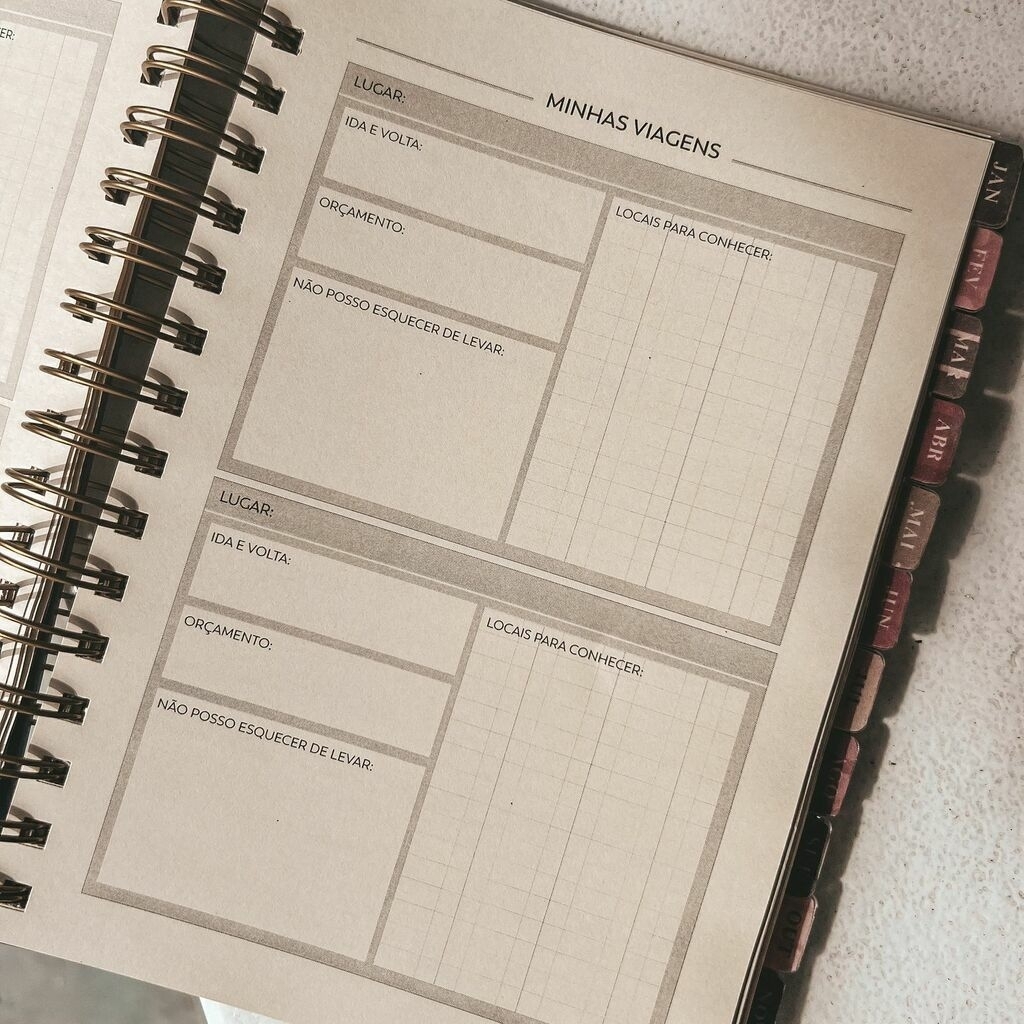 MINHAS VIAGENS
LUGAR:
IDA E VOLTA:
ORÇAMENTO:
NÃO POSSO ESQUECER DE LEVAR:
LOCAIS PARA CONHECER:
LUGAR:
IDA E VOLTA:
ORÇAMENTO:
NÃO POSSO ESQUECER DE LEVAR:
LOCAIS PARA CONHECER:
JAN
FEV
MAR
ABR
MAI
JUN
JUL
AGO
SET
OUT